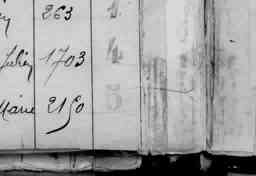 263 1
Julien 1703 4
Marie 2150 5